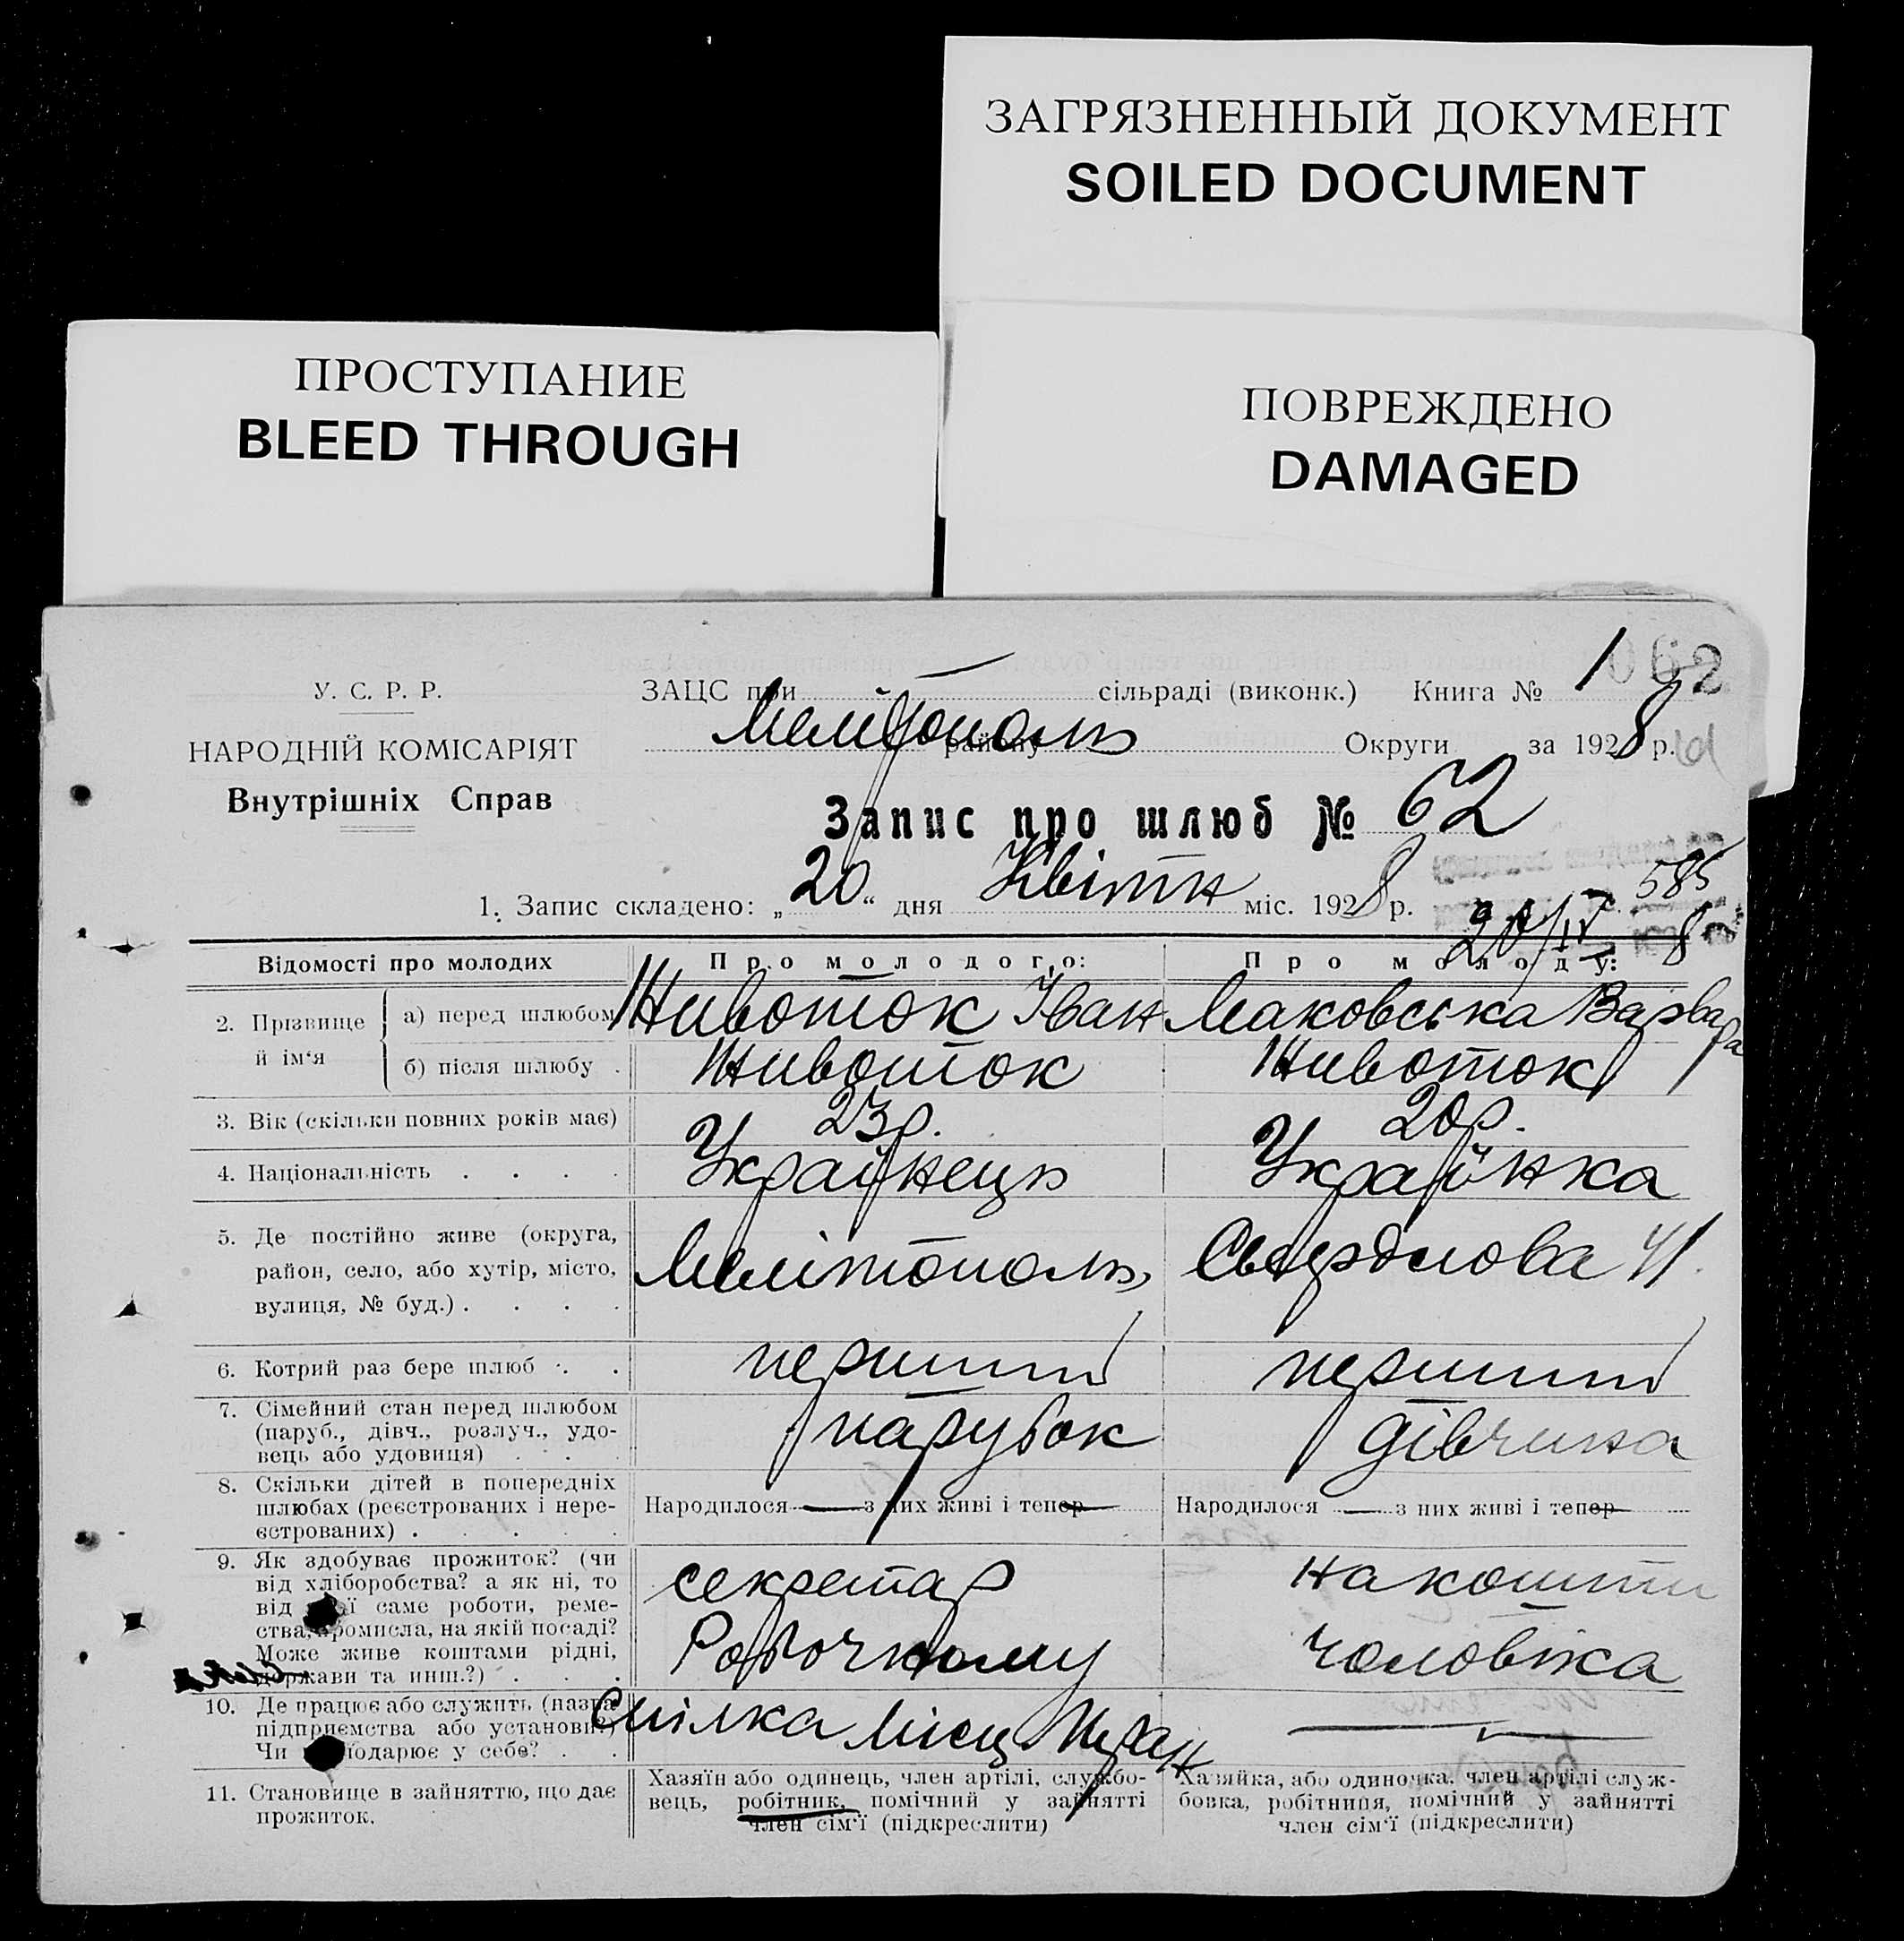 ЗАГРЯЗНЕННЫЙ ДОКУМЕНТ
SOILED DOCUMENT
ПРОСТУПАНИЕ
BLEED THROUGH
ПОВРЕЖДЕНО
DAMAGED
1062
У. С. Р. Р.
ЗАЦС при сільраді (виконк.) Книга № 1
НАРОДНІЙ КОМІСАРІЯТ
Мелітополь району Округи за 1928 р.
Внутрішніх Справ
Запис про шлюб № 62
585
1. Запис складено: „20“ дня Квітн міс. 1928 р.
20/IV 8
Відомості про молодих Про молодого: Про молоду:
2. Прізвище й ім'я а) перед шлюбом Животок Іван Маковська Варвара
б) після шлюбу . Животок Животок
3. Вік (скільки повних років має) 23р. 20р.
4. Національність . . . . Українець Українка
5. Де постійно живе (округа,
район, село, або хутір, місто, Мелітополь, Свердлова 41.
вулиця, № буд.) . . . .
6. Котрий раз бере шлюб . . перший перший
7. Сімейний стан перед шлюбом
(паруб., дівч., розлуч., удо- парубок дівчина
вець або удовиця) . . .
8. Скільки дітей в попередніх
шлюбах (реєстрованих і нере- Народилося — з них живі і тепер — Народилося — з них живі і тепер —
єстрованих) . . . . .
9. Як здобуває прожиток? (чи
від хліборобства? а як ні, то секретар на кошти
від якої саме роботи, реме-
ства, промисла, на якій посаді?
Може живе коштами рідні, Робочкому чоловіка
держави та инш.?) . . .
10. Де працює або служить (назва
підприємства або установи?) Спілка Місц.
Чи господарює у себе? . .
11. Становище в зайняттю, що дає
прожиток.
Хазяїн або одинець, член артілі, службо-
вець, робітник, помічний у зайнятті
член сім'ї (підкреслити)
Хазяйка, або одиночка, член артілі служ-
бовка, робітниця, помічний у зайнятті
член сім'ї (підкреслити)